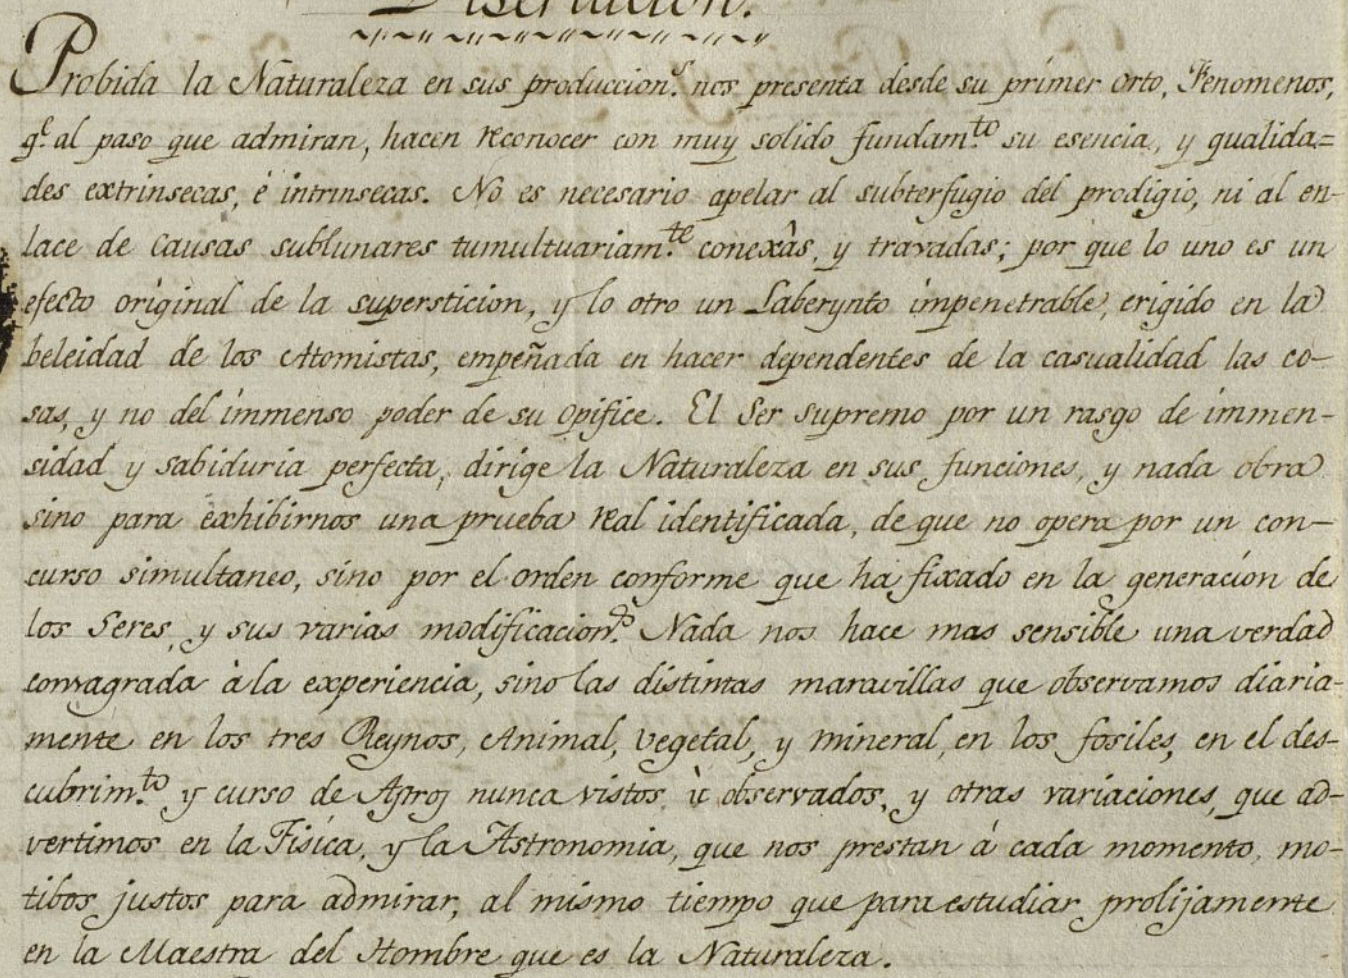 Disertacion.
Probida la Naturaleza en sus produccion.s nos presenta desde su primer orto, Fenomenos,
q.e al paso que admiran, hacen reconocer con muy solido fundam.to su esencia, y qualida=
des extrinsecas, è intrinsecas. No es necesario apelar al subterfugio del prodigio, ni al en-
lace de causas sublunares tumultuariam.te conexâs, y travadas; por que lo uno es un
efecto original de la supersticion, y lo otro un Laberynto impenetrable, erigido en la
beleidad de los Atomistas, empeñada en hacer dependentes de la casualidad las co-
sas, y no del immenso poder de su opifice. El Ser supremo por un rasgo de immen-
sidad y sabiduria perfecta, dirige la Naturaleza en sus funciones, y nada obra
sino para exhibirnos una prueba real identificada, de que no opera por un con-
curso simultaneo, sino por el orden conforme que ha fixado en la generacion de
los Seres, y sus varias modificacion.s Nada nos hace mas sensible una verdad
consagrada à la experiencia, sino las distintas maravillas que observamos diaria-
mente en los tres Reynos, Animal, vegetal, y mineral, en los fosiles, en el des-
cubrim.to y curso de Astros nunca vistos, ù observados, y otras variaciones, que ad-
vertimos en la Fisica, y la Astronomia, que nos prestan à cada momento, mo-
tibos justos para admirar, al mismo tiempo que para estudiar prolijamente
en la Maestra del Hombre que es la Naturaleza.